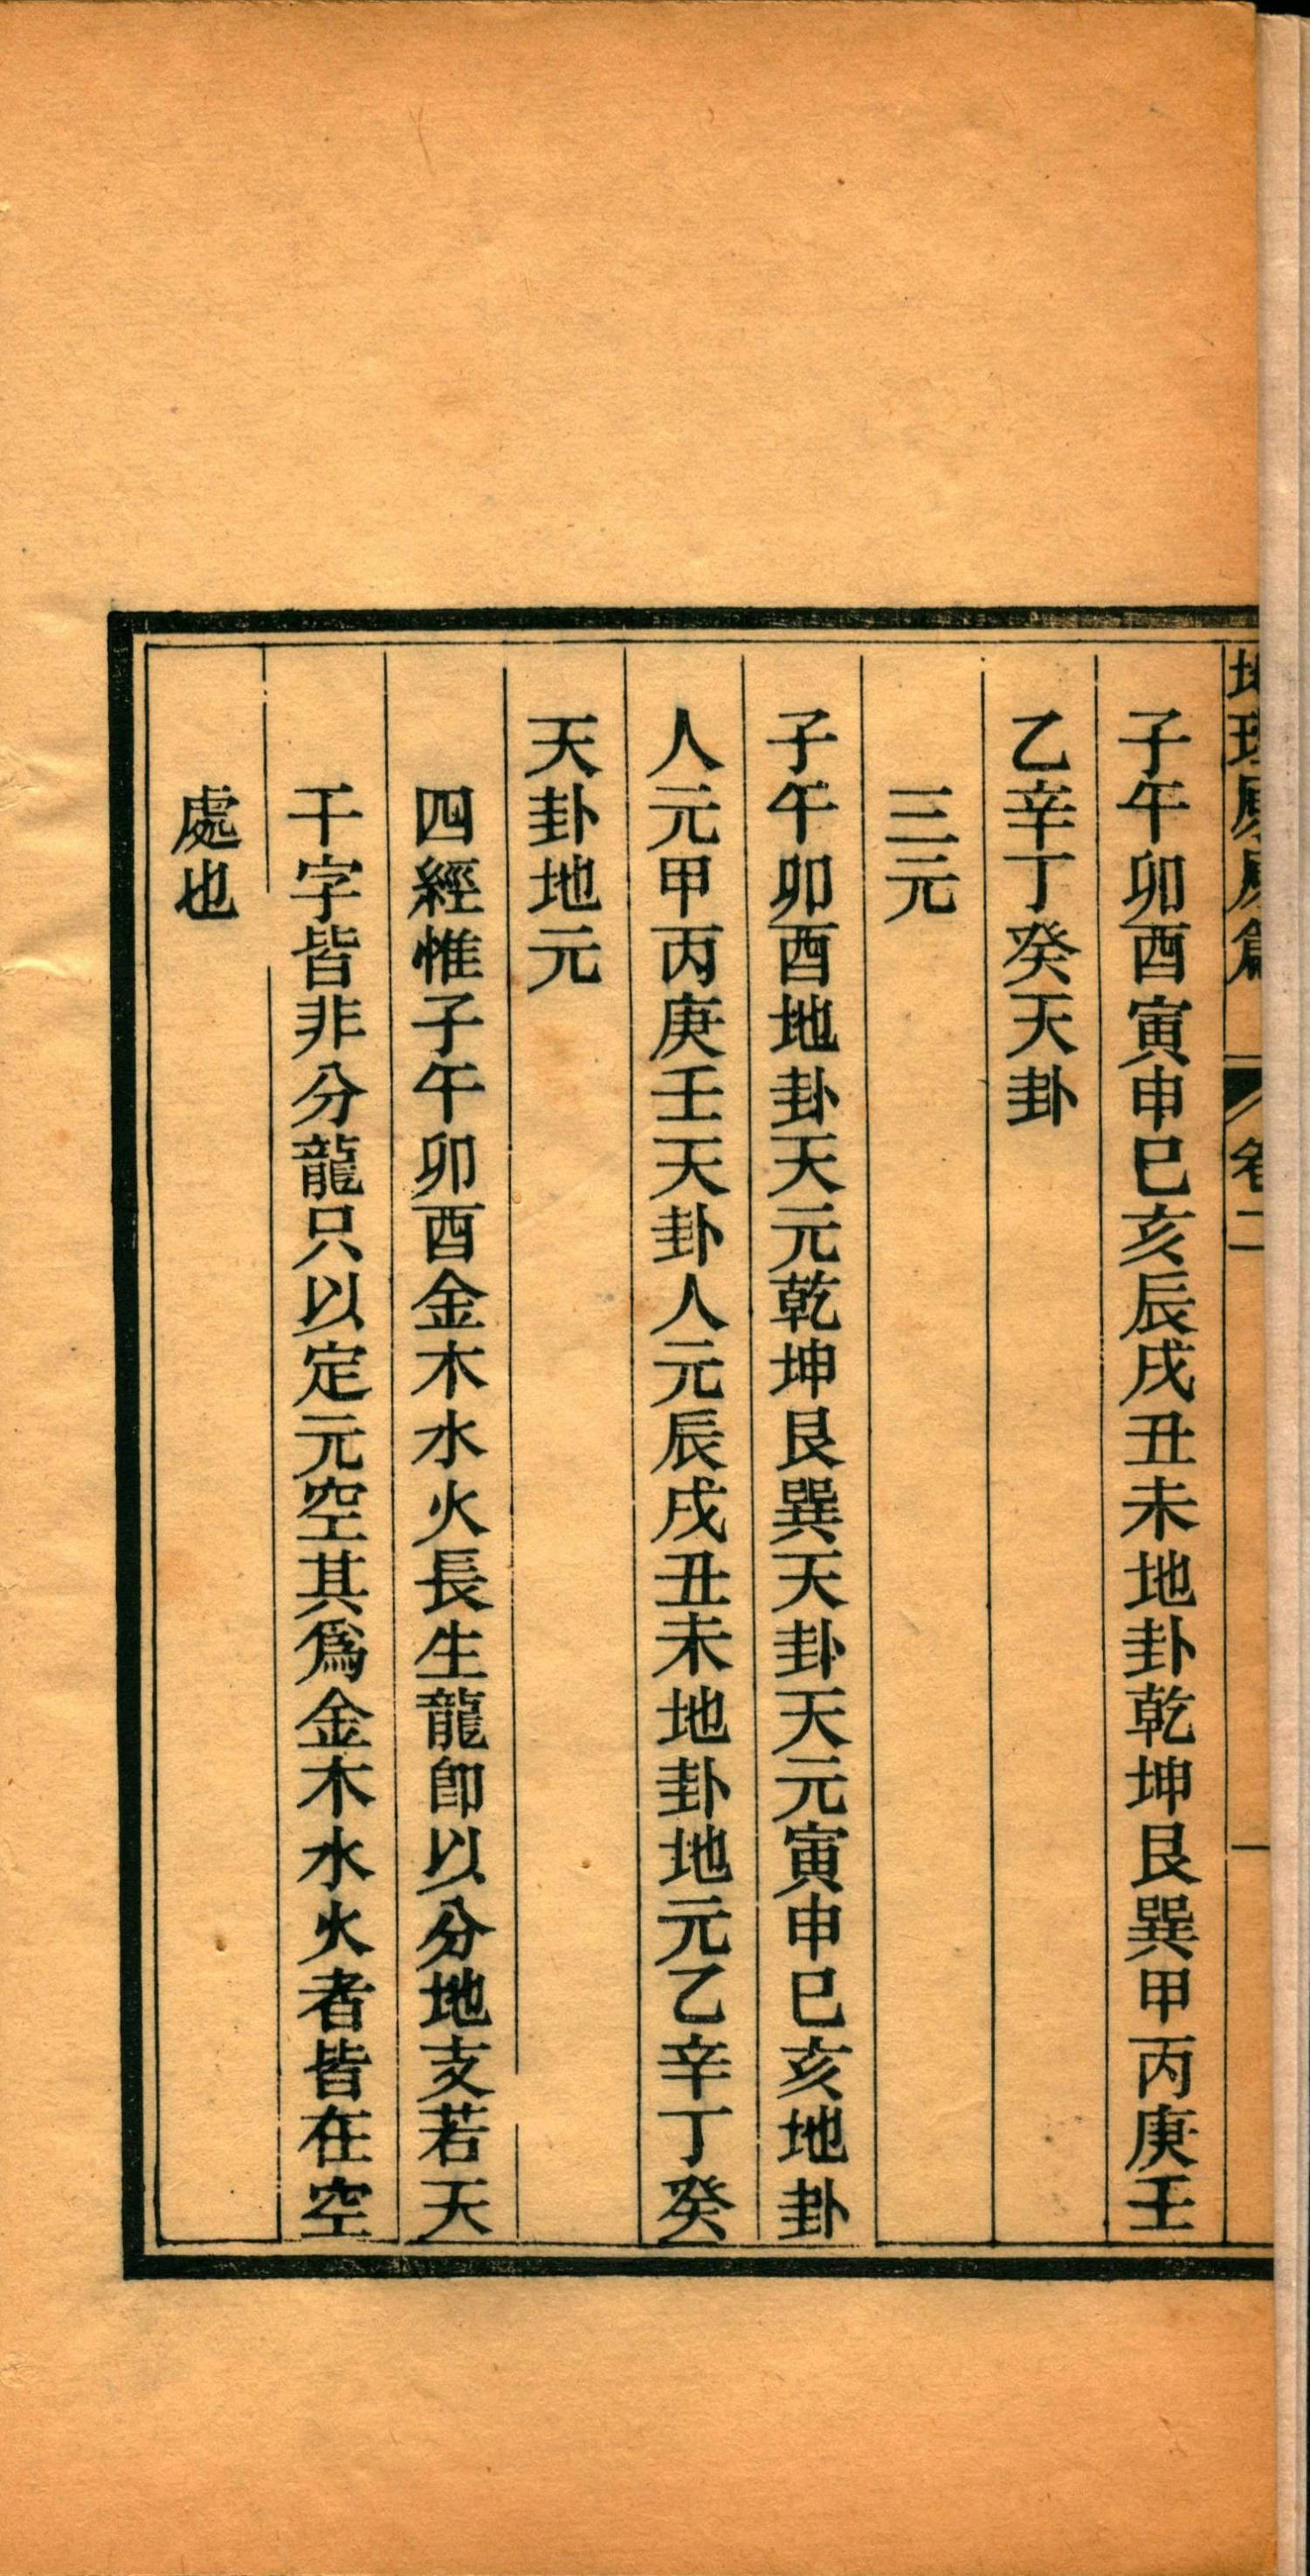 子午卯酉寅申巳亥辰戌丑未地卦乾坤艮巽甲丙庚壬
乙辛丁癸天卦
三元
子午卯酉地卦天元乾坤艮巽天卦天元寅申巳亥地卦
人元甲丙庚壬天卦人元辰戌丑未地卦地元乙辛丁癸
天卦地元
四經惟子午卯酉金木水火長生龍卽以分地支若天
干字皆非分龍只以定元空其爲金木水火者皆在空
處也
卷二
一